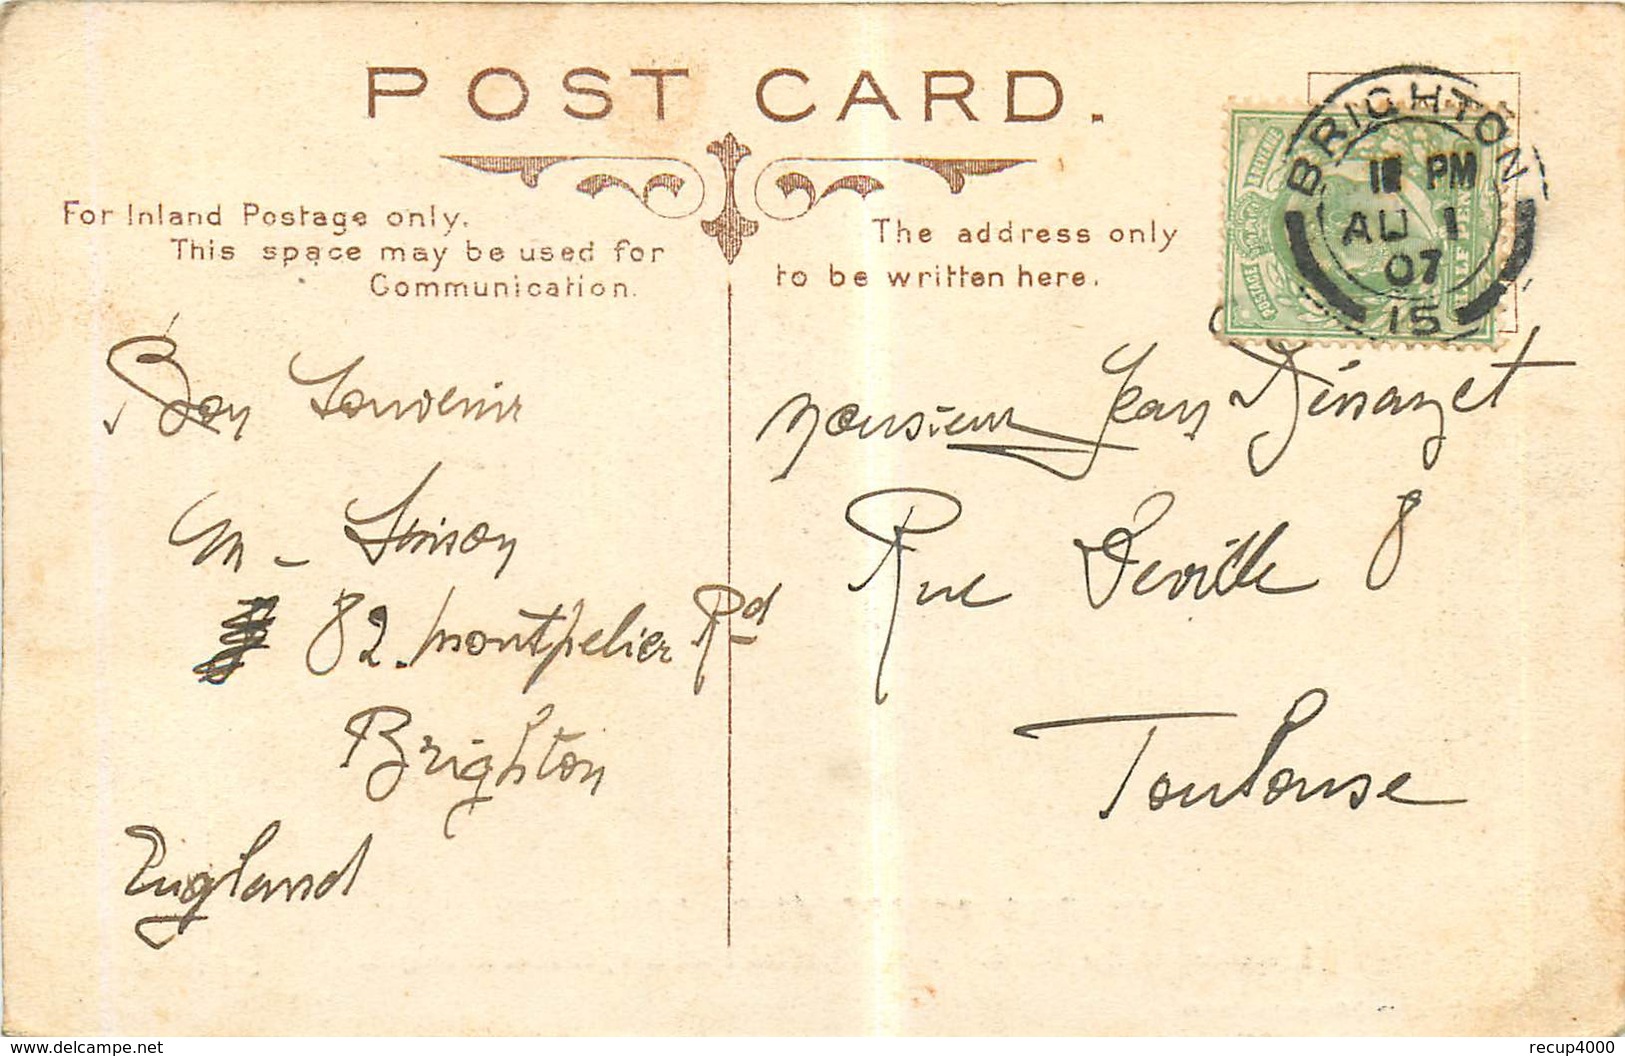 POST CARD.
For Inland Postage only.
This space may be used for
Communication.
The address only
to be written here.
BRIGHTON
PM
AU 1
07
15
POSTAGE
Bon Souvenir
M- Simson
82. Montpelier Rd
Brighton
England
Monsieur Jean
Rue Deville 8
Toulouse
delcampe.net
recup4000